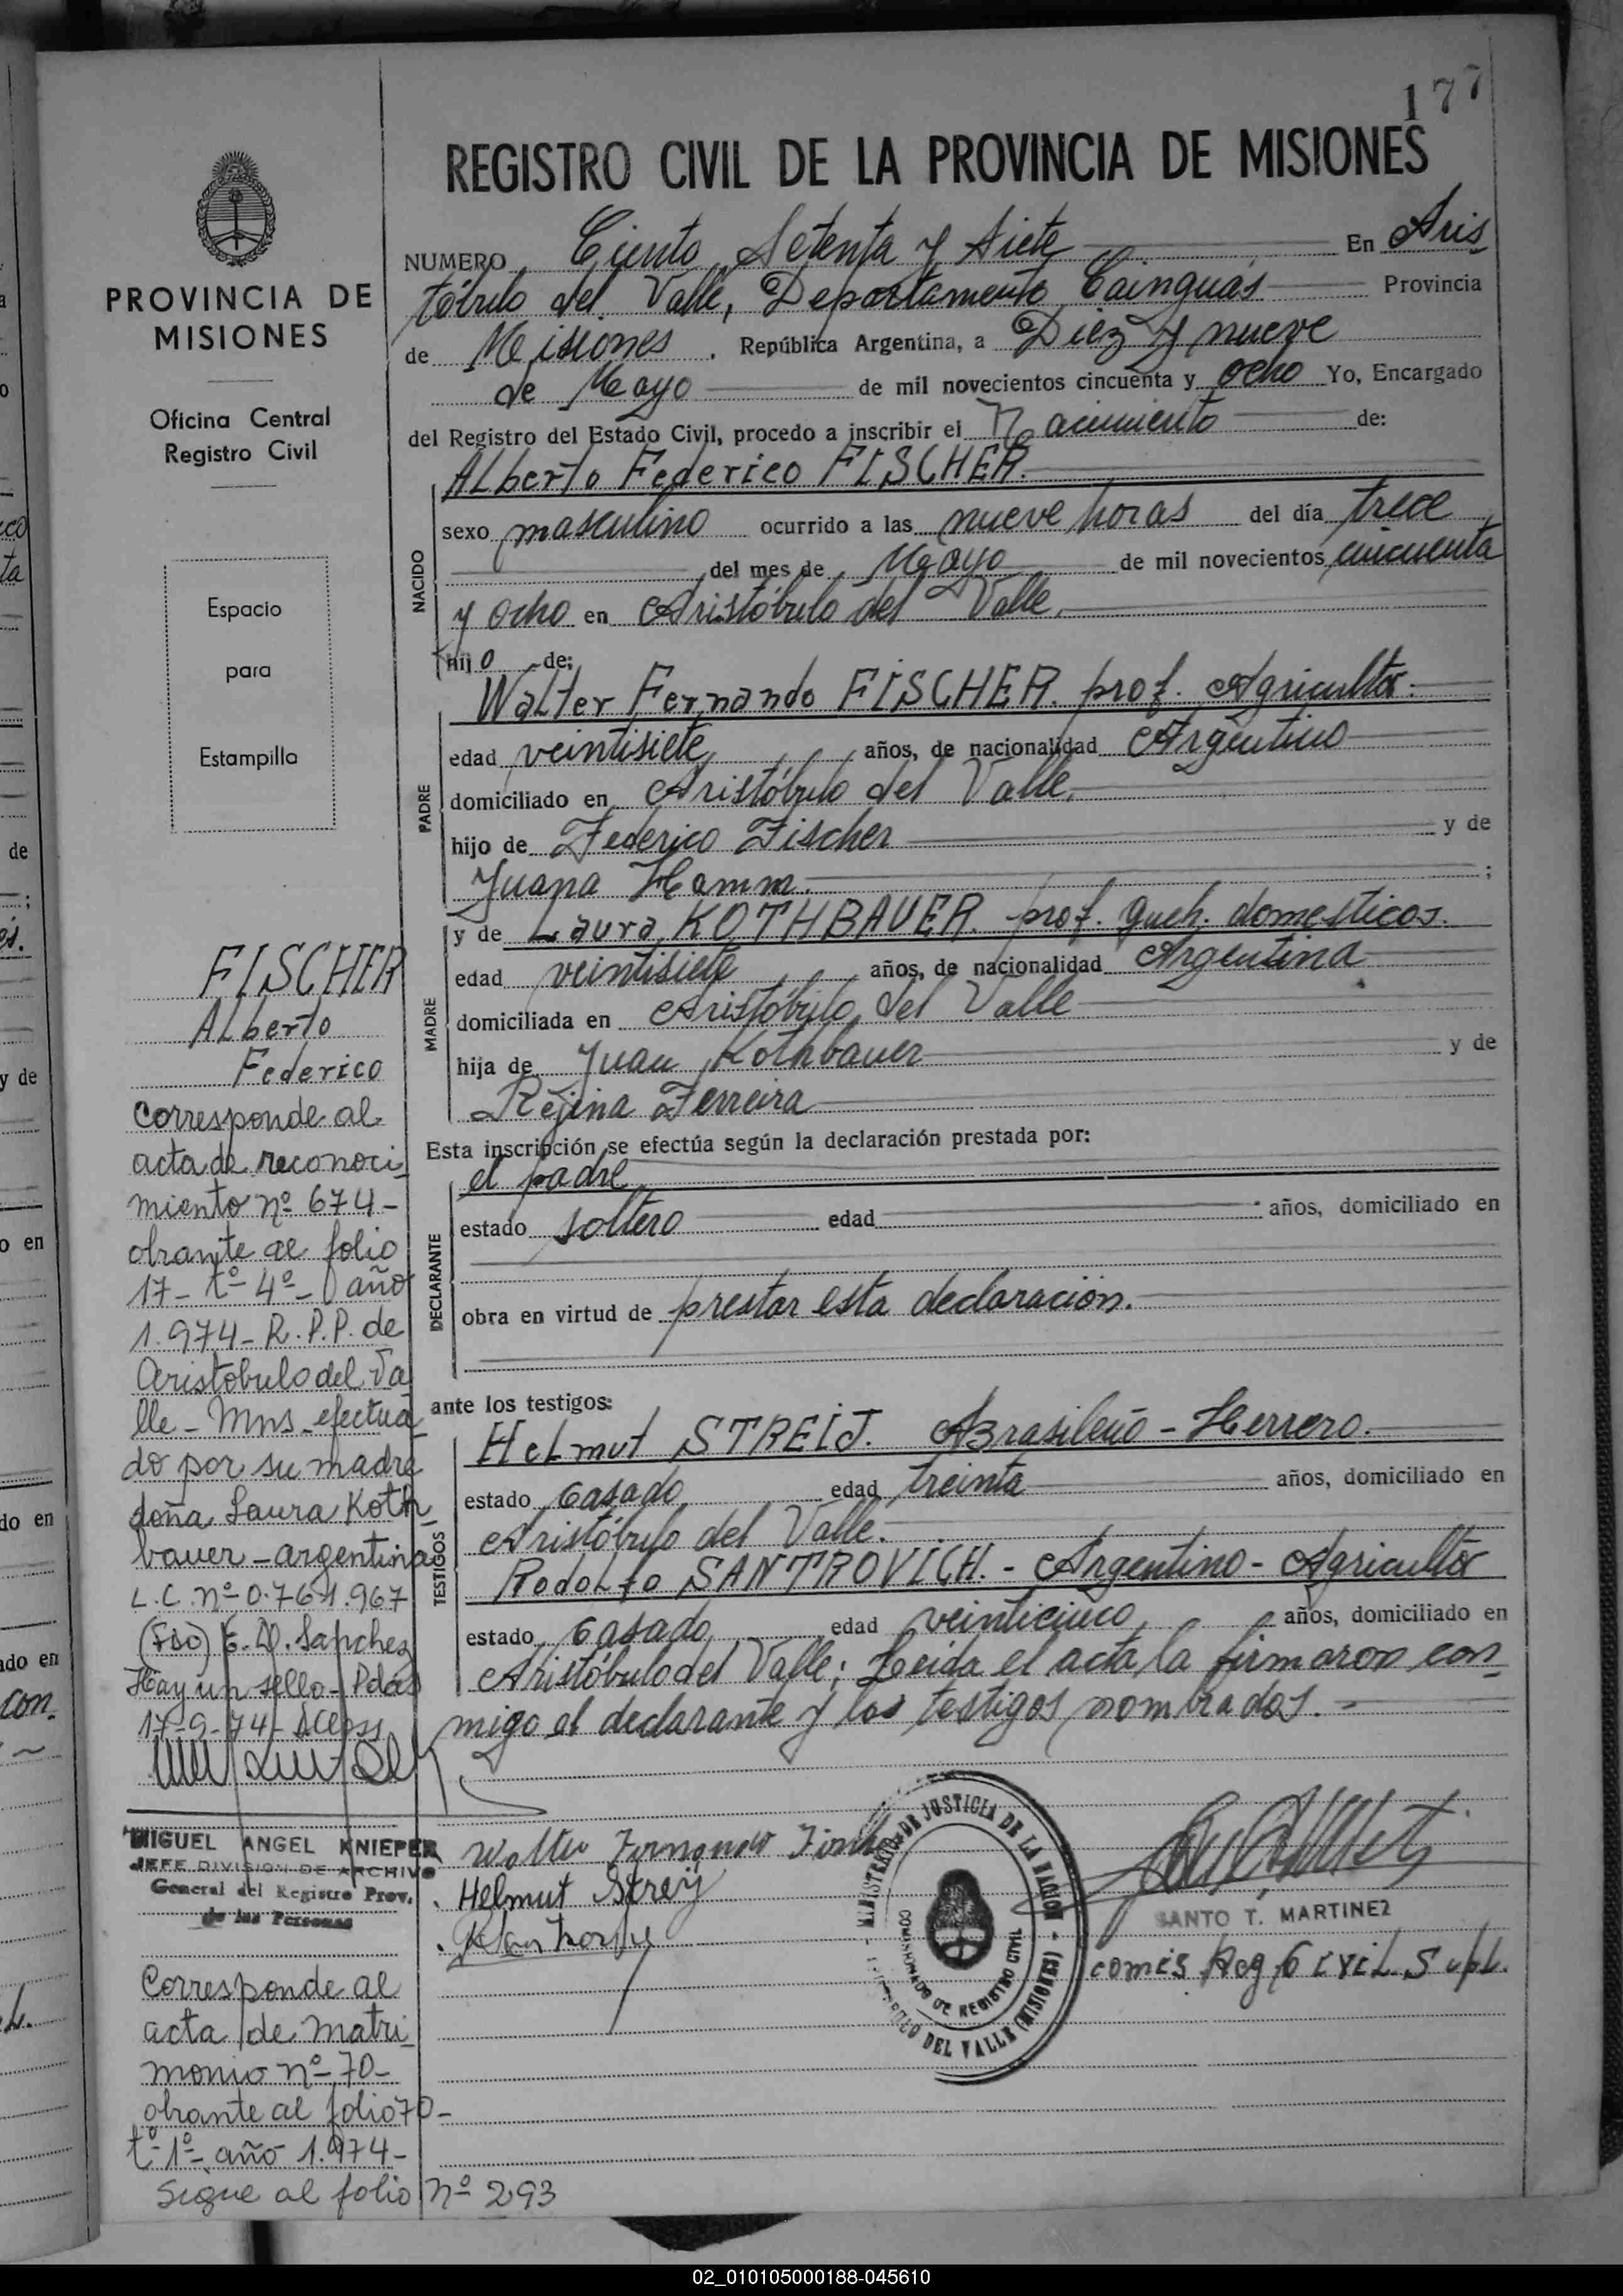 177
REGISTRO CIVIL DE LA PROVINCIA DE MISIONES
PROVINCIA DE
MISIONES
Oficina Central
Registro Civil
Espacio
para
Estampilla
NUMERO Ciento Setenta y Siete En Aris
tóbulo del Valle, Departamento Cainguás Provincia
de Misiones . República Argentina, a Diez y nueve
de Mayo de mil novecientos cincuenta y ocho Yo, Encargado
del Registro del Estado Civil, procedo a inscribir el Nacimiento de:
ALberto Federico FISCHER.
NACIDO
sexo masculino ocurrido a las nueve horas del día trece
del mes de Mayo de mil novecientos cincuenta
y ocho en Aristóbulo del Valle
hijo de:
Walter Fernando FISCHER. prof. Agricultor.
PADRE
edad veintisiete años, de nacionalidad Argentino
domiciliado en Aristóbulo del Valle.
hijo de Federico Fischer y de
Juana Hamm. ;
y de Laura KOTHBAUER. prof. queh. domesticos.
MADRE
edad veintisiete años, de nacionalidad Argentina
domiciliada en Aristóbulo del Valle
hija de Juan Kothbauer y de
Rejina Ferreira
Esta inscripción se efectúa según la declaración prestada por:
el padre
DECLARANTE
estado soltero edad años, domiciliado en
obra en virtud de prestar esta declaración.
ante los testigos:
HeLmut STREIJ. Brasileño - Herrero.
TESTIGOS
estado casado edad treinta años, domiciliado en
Aristóbulo del Valle.
RodoLfo SANTROVICH. - Argentino - Agricultor
estado casado edad veinticinco años, domiciliado en
Aristóbulo del Valle; Leida el acta la firmaron con
migo el declarante y los testigos nombrados. =
Walter Fernando
Helmut Streij
MINISTERIO DE JUSTICIA DE LA NACION
COMISIONADO DE REGISTRO CIVIL
DEL VALLE (MISIONES)
SANTO T. MARTINEZ
comis Reg CiviL Supl.
FISCHER
ALberto
Federico
Corresponde al
acta de reconoci
miento nº 674-
obrante al folio
17- tº 4º- año
1.974- R.P.P. de
Aristobulo del Va
lle - Mns - efectua
do por su madre
doña Laura Koth
bauer - argentina
L.C. nº 0.761.967
(Fdo) E. D. Sanchez
Hay un sello - Pdas
17-9-74-
MIGUEL ANGEL KNIEPER
JEFE DIVISION DE ARCHIVO
General del Registro Prov.
de las Personas
Corresponde al
acta de matri
monio nº 70-
obrante al folio 70-
tº 1º- año 1.974-
Sigue al folio nº 293
02_010105000188-045610